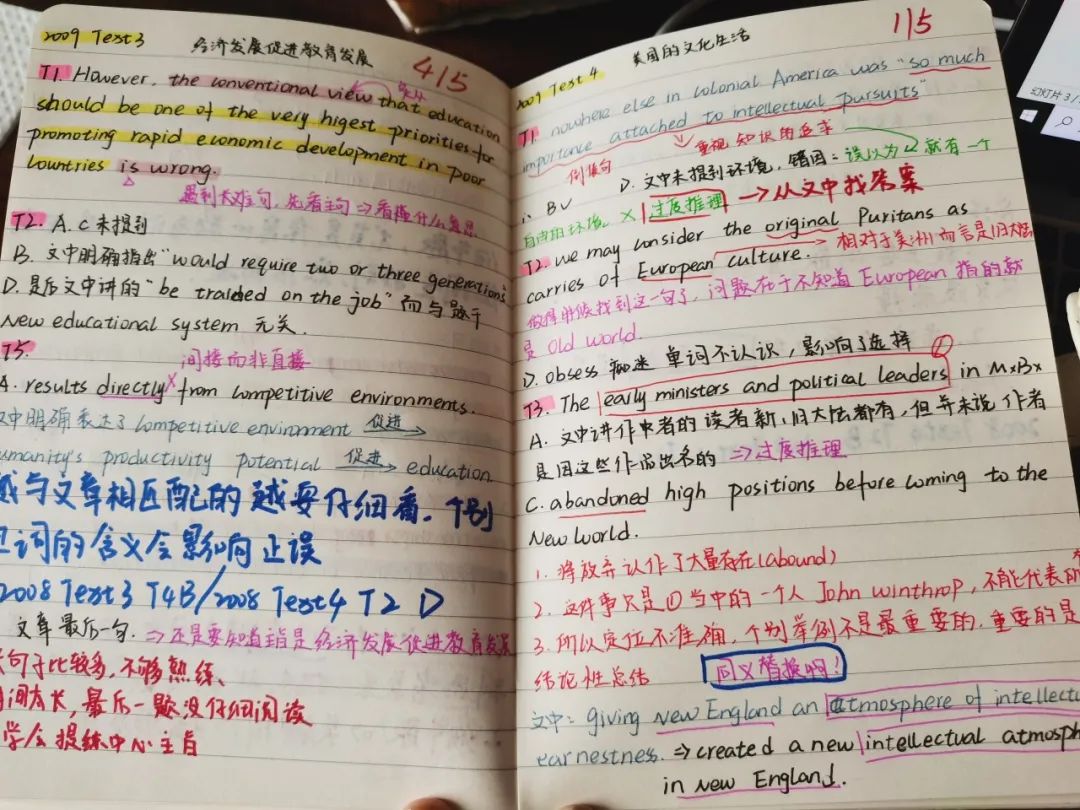 2009 Text 3 经济发展促进教育发展 4/5
T1. However, the conventional view that education
should be one of the very higest priorities for
promoting rapid economic development in poor
countries is wrong.
遇到长难句,先看主句⇒看懂什么意思
T2. A. C未提到
B. 文中明确指出"would require two or three generations
D. 是后文中讲的"be trained on the job"而与题干
New educational system 无关.
T5. 间接而非直接
A. results directly × from competitive environments.
文中明确表达了 competitive environment 促进→
humanity's productivity potential 促进→ education.
越与文章相匹配的越要仔细看,个别
单词的含义会影响正误
2008 Text3 T4B/2008 Text4 T2 D
文章最后一句. ⇒还是要知道主旨是经济发展促进教育发展
长句子比较多,不够熟练、
时间太长,最后一题没仔细阅读
学会提炼中心主旨
2009 Text 4 美国的文化生活 1/5
T1. nowhere else in colonial America was "so much
importance attached to intellectual pursuits"
倒装句 重视 知识的追求
D. 文中未提到环境,错因:误以为 就有一个
B√
自由的环境. × 过度推理 →从文中找答案
T2. we may consider the original Puritans as
carries of European culture. → 相对于美洲而言是旧大陆
做得时候找到这一句了,问题在于不知道European 指的就
是 Old world.
D. obsess 痴迷 单词不认识,影响了选择
①
T3. The early ministers and political leaders in M×B×
A. 文中讲作中者的读者新,旧大陆都有,但并未说作者
是因这些作品出名的 ⇒过度推理
C. abandoned high positions before coming to the
New World.
1. 将放弃认作了大量存在(abound)
2. 这件事只是①当中的一个人 John Winthrop,不能代表所
3. 所以定位不准确,个别举例不是最重要的,重要的是
结论性总结 同义替换啊!
文中: giving New England an atmosphere of intellectu
earnestness. ⇒ created a new intellectual atmosph
in New England.